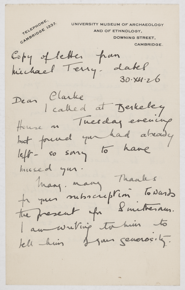 TELEPHONE,
CAMBRIDGE 1397.
UNIVERSITY MUSEUM OF ARCHAEOLOGY
AND OF ETHNOLOGY,
DOWNING STREET,
CAMBRIDGE.
Copy of letter from
Michael Terry. dated
30.XII.26
Dear Clarke
I called at Berkeley
House on Tuesday evening
but found you had already
left - so sorry to have
missed you.
Many, many thanks
for your subscription towards
the present for
I am writing to him to
tell him of your generosity.